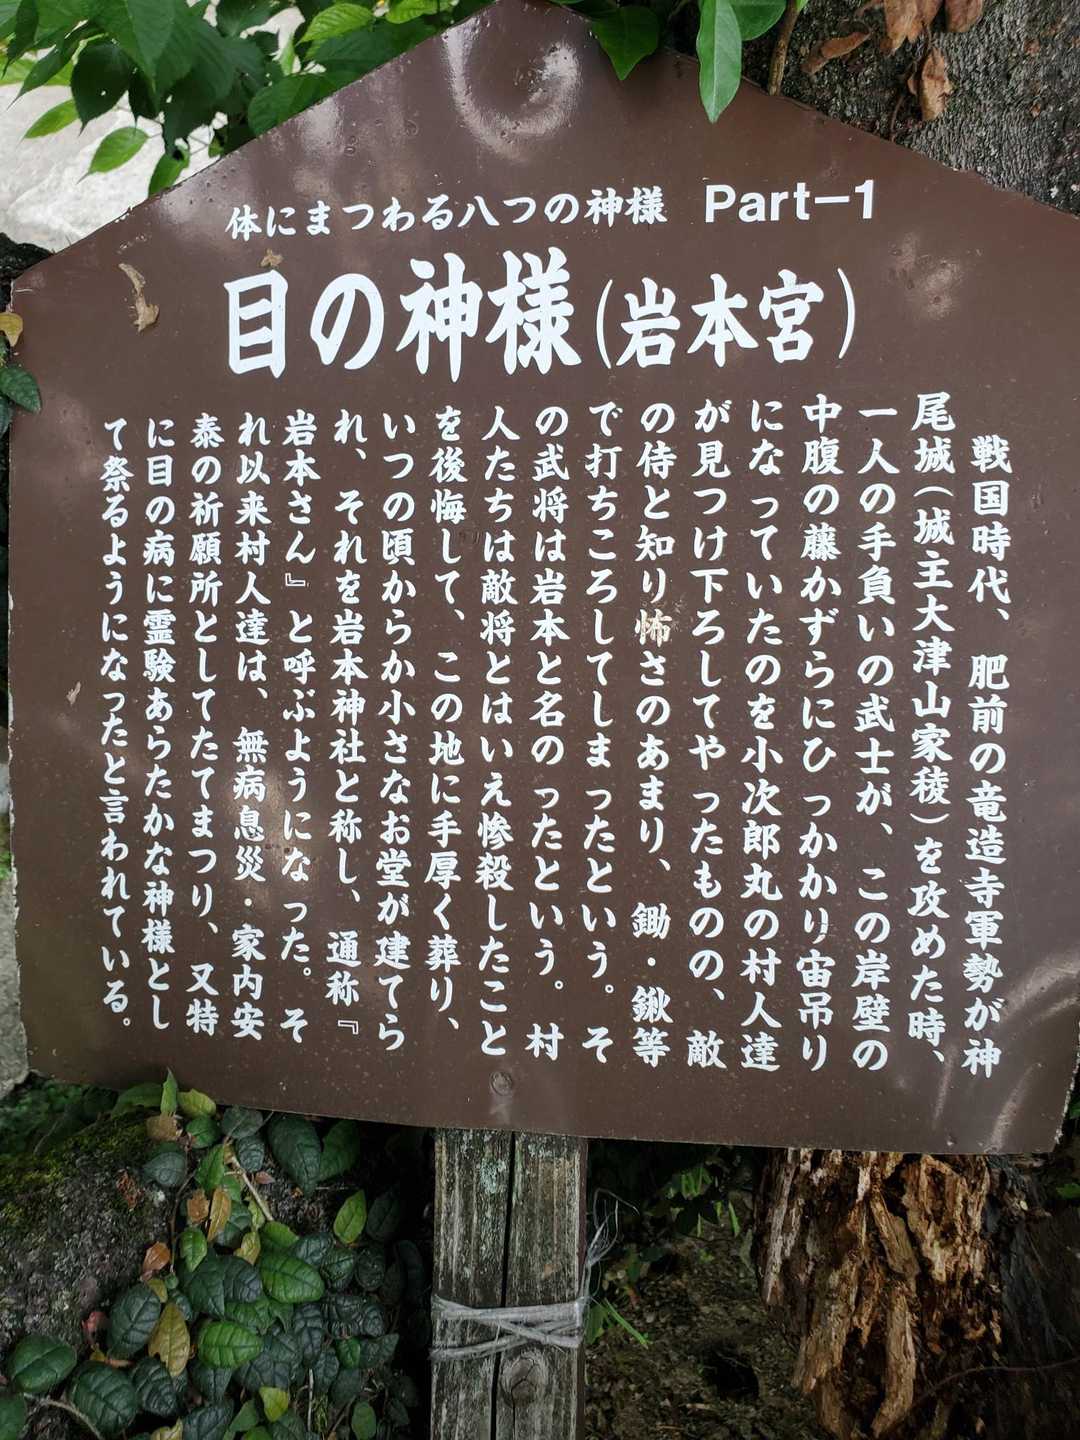 体にまつわる八つの神様 Part-1
目の神様(岩本宮)
戦国時代、肥前の竜造寺軍勢が神
尾城(城主大津山家稜)を攻めた時、
一人の手負いの武士が、この岸壁の
中腹の藤かずらにひっかかり宙吊り
になっていたのを小次郎丸の村人達
が見つけ下ろしてやったものの、敵
の侍と知り怖さのあまり、鋤・鍬等
で打ちころしてしまったという。そ
の武将は岩本と名のったという。村
人たちは敵将とはいえ惨殺したこと
を後悔して、この地に手厚く葬り、
いつの頃からか小さなお堂が建てら
れ、それを岩本神社と称し、通称『
岩本さん』と呼ぶようになった。そ
れ以来村人達は、無病息災・家内安
泰の祈願所としてたてまつり、又特
に目の病に霊験あらたかな神様とし
て祭るようになったと言われている。